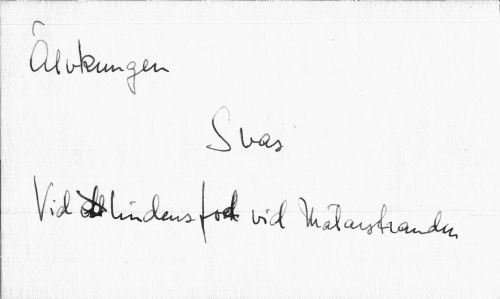 Älvkungen
Svas
Vid lindens fot vid Mälarstranden